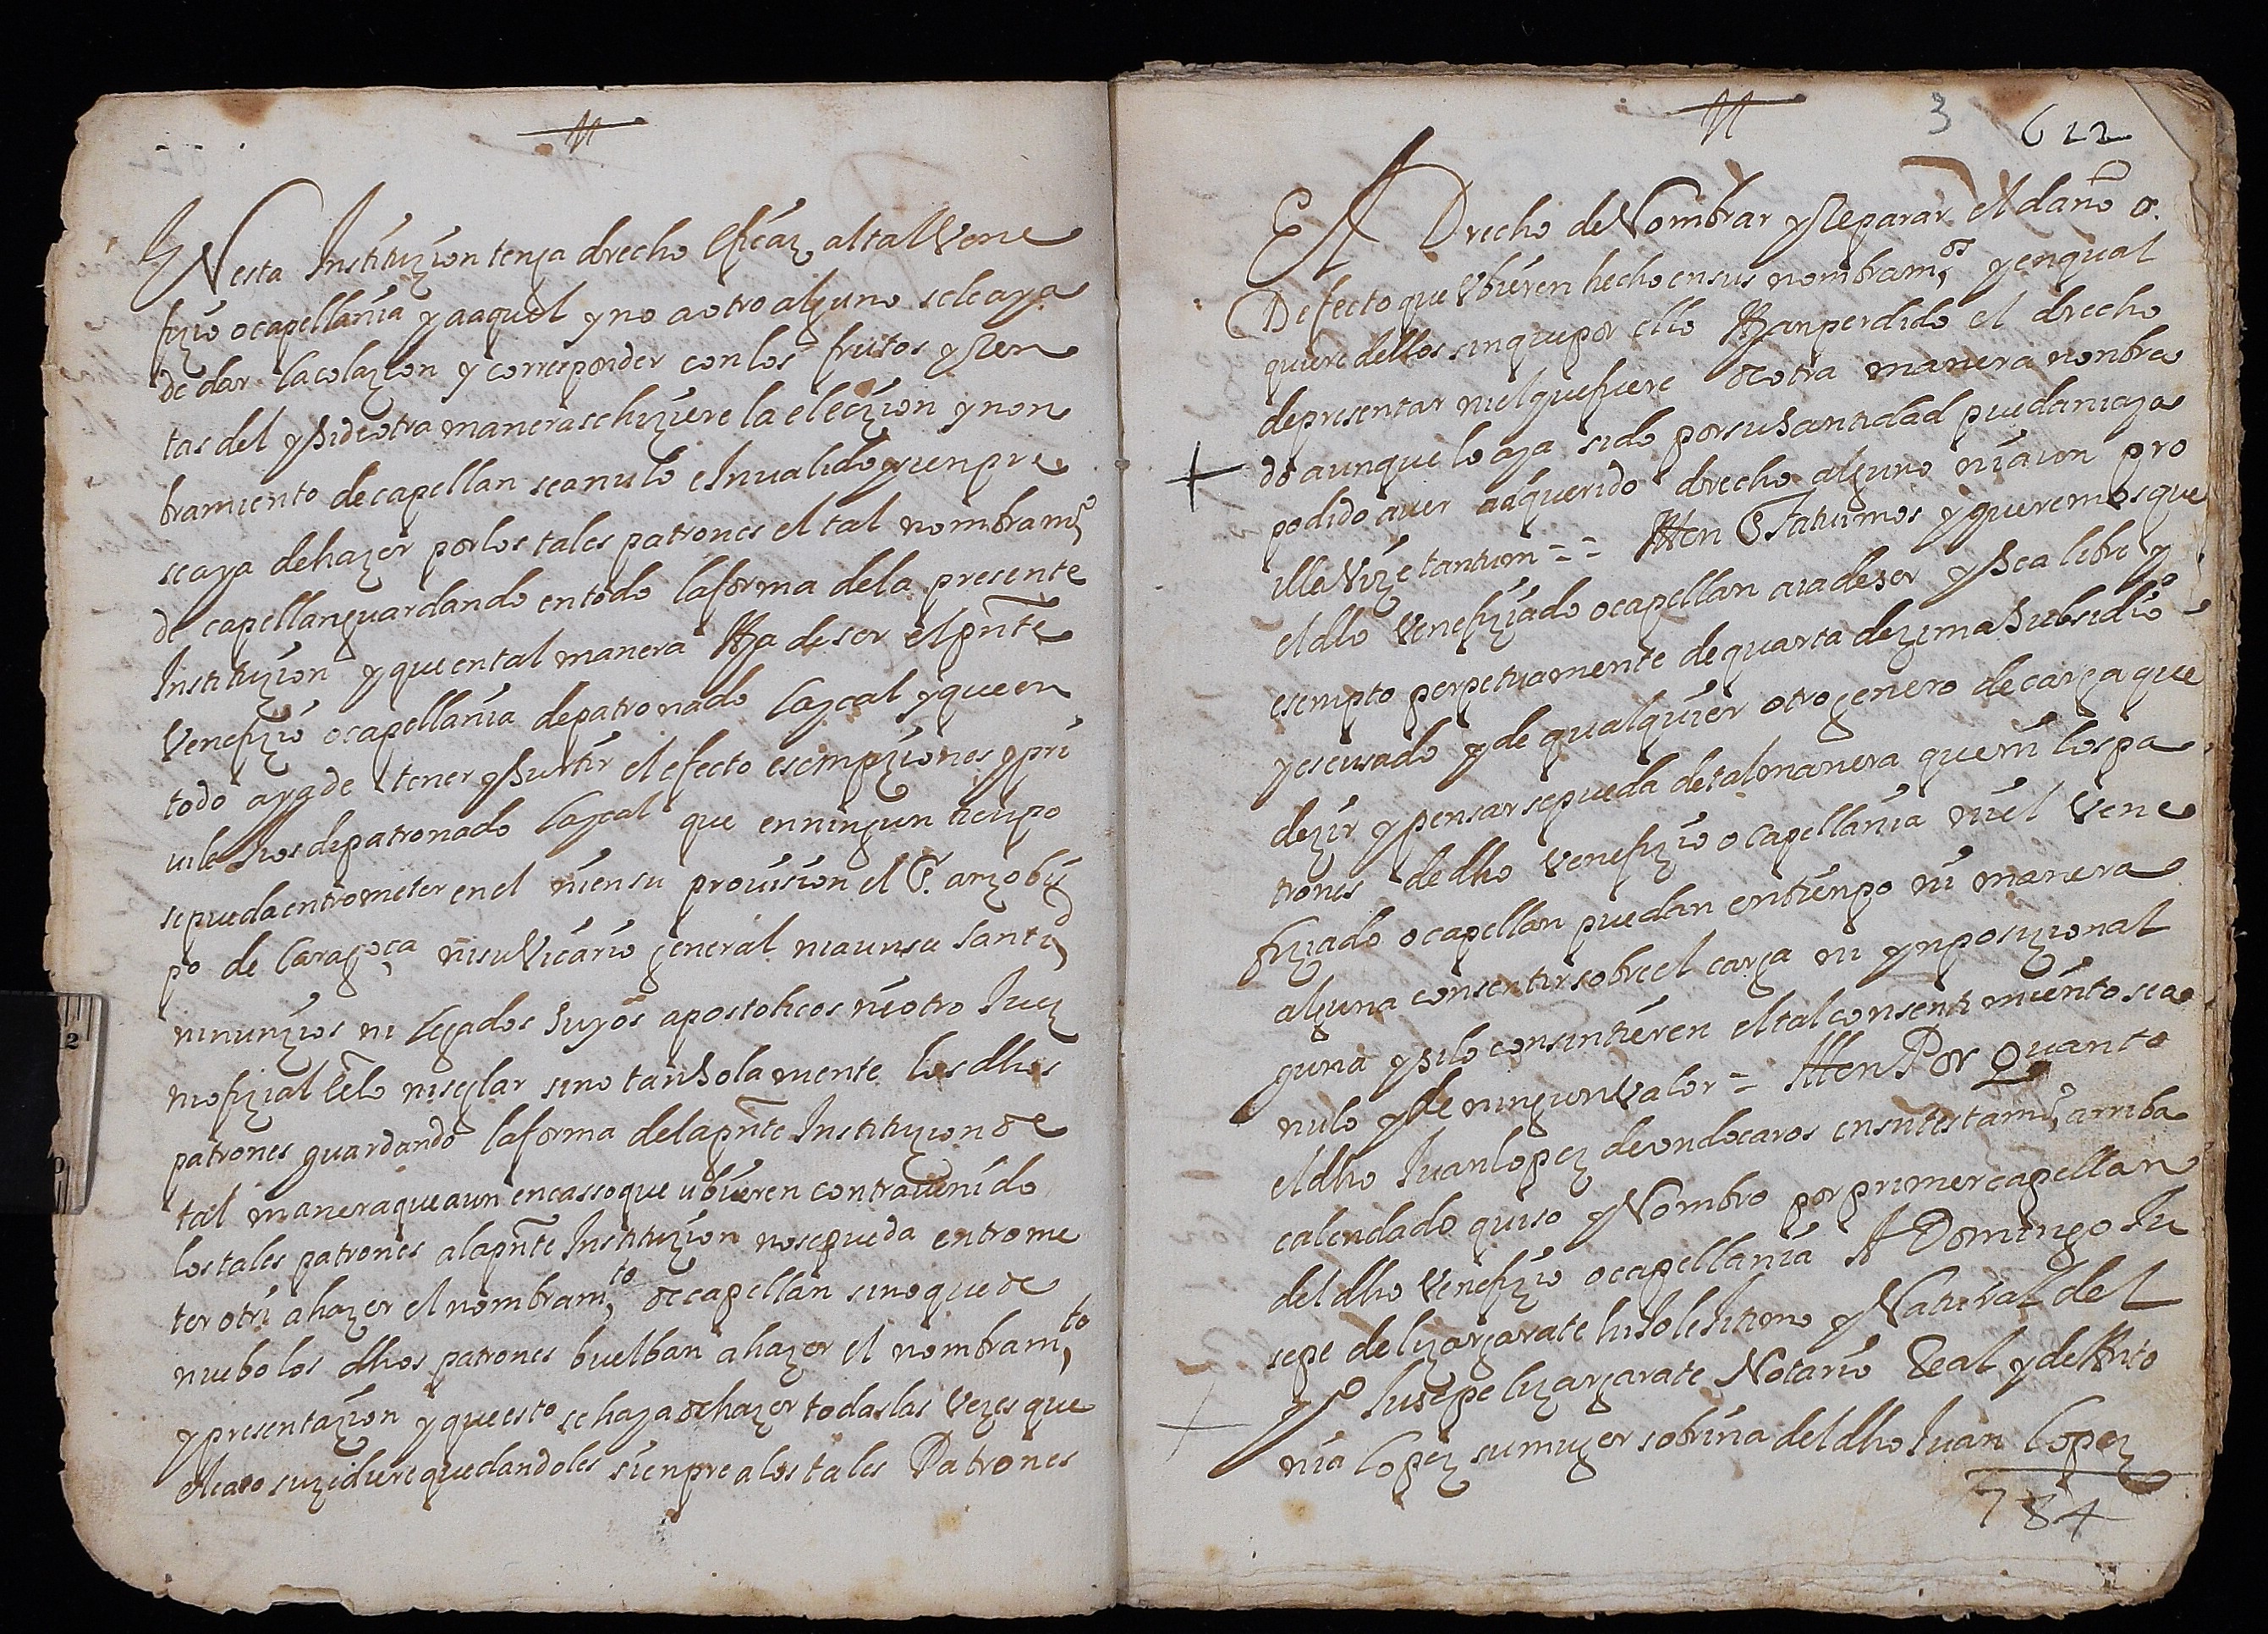 En esta Instituzion tenga drecho eficaz al tal Vene
fizio o capellania y a aquel y no a otro alguno se le aya
de dar la colazion y corresponder con los frutos y Ren
tas del y si de otra manera se hiziere la eleczion y non
bramiento de capellan sea nulo e Inualido y sienpre
se aya de hazer por los tales patrones el tal nombramº
de capellan guardando en todo la forma de la presente
Instituzion y que en tal manera Ha de ser el pnte
Venefizio o capellania de patronado laycal y que en
todo aya de tener y surtir el efecto esempziones y pri
uilejios de patronado laycal que en ningun tienpo
se pueda entrometer en el ni en su prouision el S. arzobis
po de Caragoça ni su Vicario general ni aun su Santid
ni nunzios ni legados suyos apostolicos ni otro Juez
ni ofizial ecclo ni seglar sino tan solamente los dhos
patrones guardando la forma de la pnte Instituzion de
tal manera que aun en casso que ubieren contrauenido
los tales patrones a la pnte Instituzion no se pueda entrome
ter otri a hazer el nombramto de capellan sino que de
nuebo los dhos patrones buelban a hazer el nombramto
y presentazion y que esto se haya de hazer todas las Vezes que
el caso suzediere quedandoles sienpre a los tales Patrones
3 622
El Drecho de Nombrar y Reparar el daño o
Defecto que Ubieren hecho en sus nombramos y en qual
quiere dellos sin que por ello Han perdido el drecho
de presentar ni el que fuere de otra manera nombra
do aunque lo aya sido por su Santidad pueda ni aya
podido auer adquerido drecho alguno ni aun pro
illa Vize tantum == Itten Estatuimos y queremos que
el dho Venefiziado o capellan aia de ser y sea libre y
esempto perpetuamente de quarta dezima Subsidio
y escusado y de qualquier otro genero de carga que
dezir y pensar se pueda de tal manera que ni los pa
trones de dho Venefizio o capellania ni el Vene
fiziado o capellan puedan en tienpo ni manera
alguna consentir sobre el carga ni ynposizion al
guna y si lo consintieren el tal consentimiento sea
nulo y de ningun valor = Itten Por Quanto
el dho Juan lopez de ondocaros en su testamº arriba
calendado quiso y Nombro por primer capellan
del dho Venefizio o capellania A Domingo Ju
sepe de lizarçarate hijo lejitimo y Natural del
Jusepe lizarçarate Notario Real y de Anto
nia lopez su muger sobrina del dho Juan Lopez
784